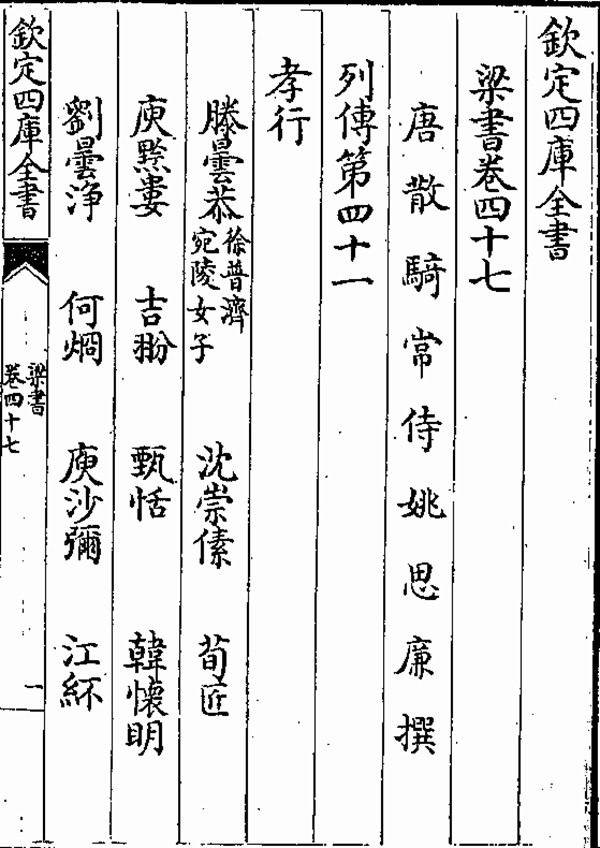 欽定四庫全書
梁書卷四十七
唐散騎常侍姚思廉撰
列傳第四十一
孝行
滕曇恭 徐普濟 宛陵女子 沈崇傃 荀匠
庾黔婁 吉翂 甄恬 韓懷明
劉曇浄 何烱 庾沙彌 江紑
欽定四庫全書
梁書
卷四十七
一